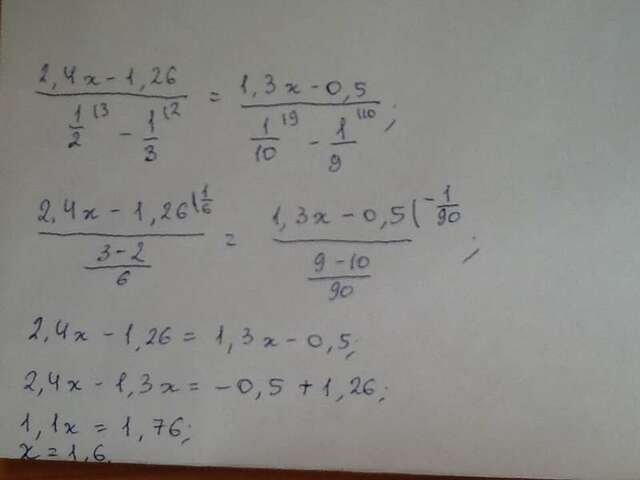 2,4x - 1,26 / (1/2 (3 - 1/3 (2) = 1,3x - 0,5 / (1/10 (9 - 1/9 (10);
2,4x - 1,26 (1/6 / ((3-2)/6) = 1,3x - 0,5 (-1/90 / ((9-10)/90);
2,4x - 1,26 = 1,3x - 0,5;
2,4x - 1,3x = -0,5 + 1,26;
1,1x = 1,76;
x = 1,6.